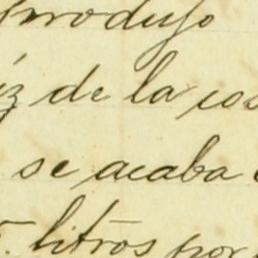 produjo
iz de la cos
se acaba
litros por